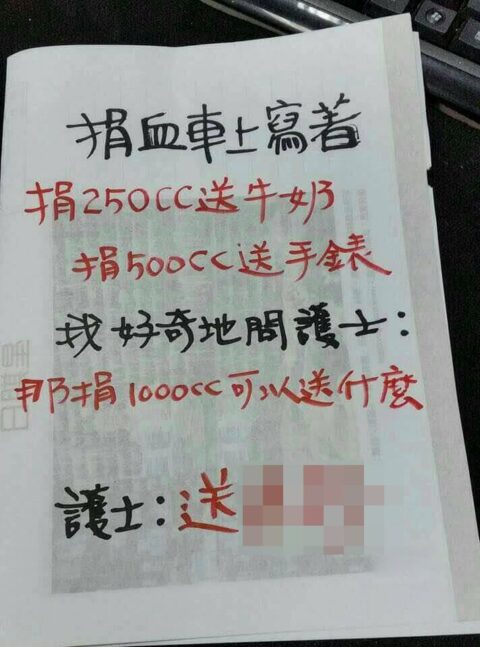 捐血車上寫著
捐250CC送牛奶
捐500CC送手錶
我好奇地問護士:
那捐1000CC可以送什麼
護士:送